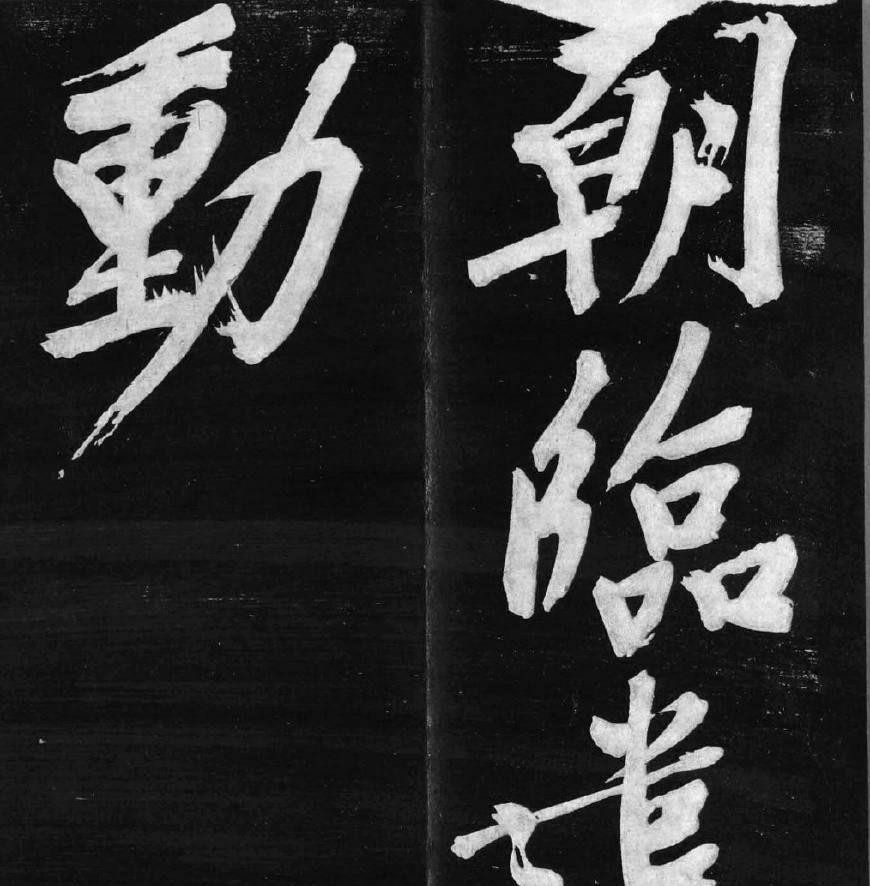 朝臨
動